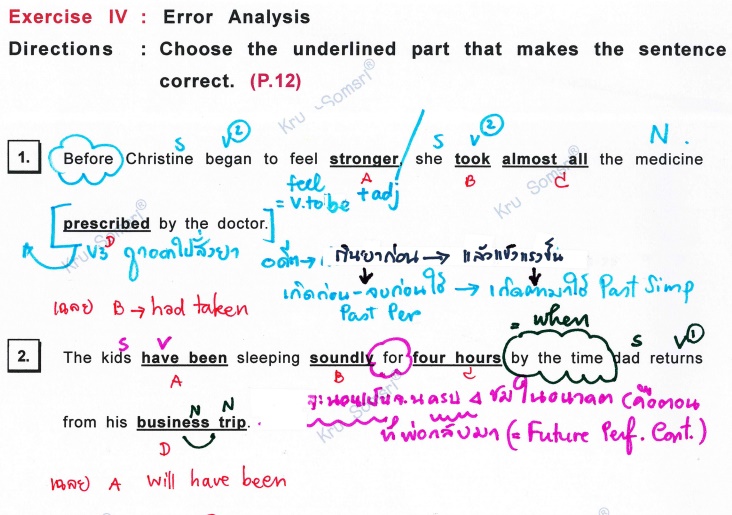 Exercise IV : Error Analysis
Directions : Choose the underlined part that makes the sentence
correct. (P.12)
Kru Somsri®
S V② S V② N.
1. Before Christine began to feel stronger, she took almost all the medicine
feel A B C
= V.to be + adj
Kru Somsri®
prescribed by the doctor.
V3 D ถูกออกใบสั่งยา อดีต → 1. กินยาก่อน → แล้วแข็งแรงขึ้น
เกิดก่อน-จบก่อนใช้ → เกิดตามมาใช้ Past Simp
Past Per
เฉลย B → had taken
= when
S V S V①
2. The kids have been sleeping soundly for four hours by the time dad returns
A B C
จะนอนเป็นเวลาครบ 4 ชม ในอนาคต (คือตอน
N N
from his business trip.
ที่พ่อกลับมา (= Future Perf. Cont.)
D
Kru Somsri®
เฉลย A will have been